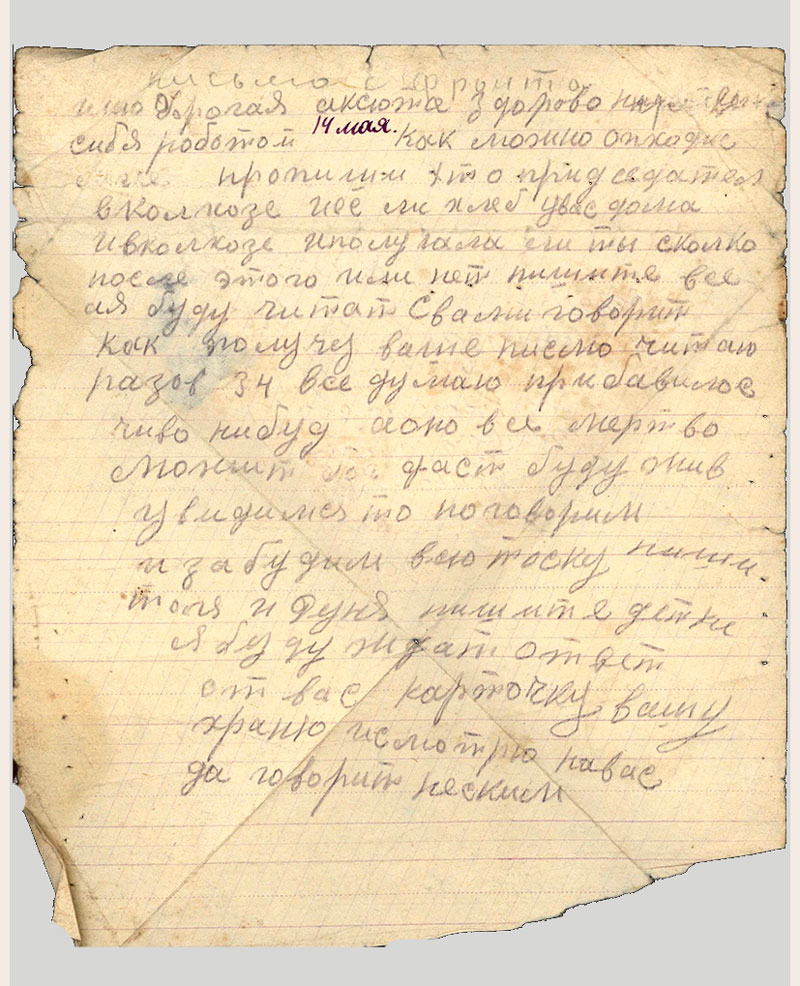 письмо с фронта
дорогая аксюта здорово
сибя роботой 14 мая. Как можно
пропиши хто придседател
вколхозе иеё ли хлеб увас дома
ивколхозе иполучала ли ты сколко
после этого или нет пишите все
ая буду читат Свами говорит
как получу ваше писмо читаю
разов 34 все думаю прибавилос
чиво нибуд аоно все мертво
можит бог даст буду жив
увидимся то поговорим
и забудим всю тоску пиши
толя и Дуня пишите детки
я буду ждат ответ
от вас карточку вашу
храню исмотрю навас
да говорит неским